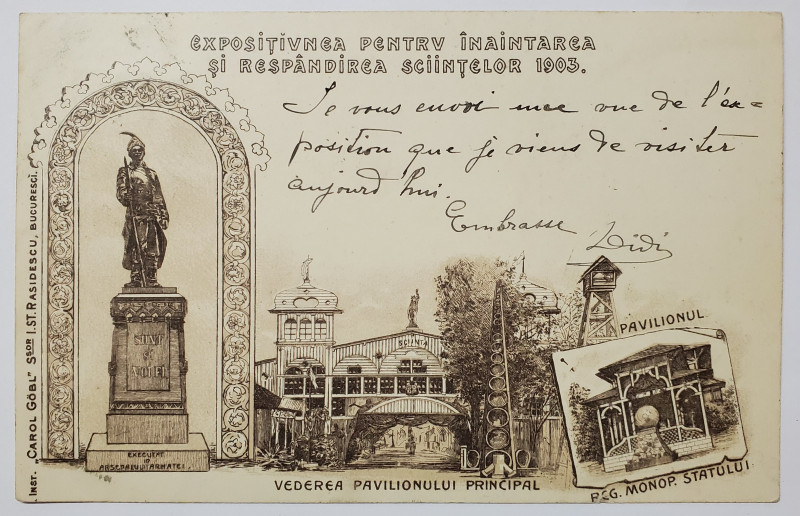 EXPOSIȚIVNEA PENTRV ÎNAINTAREA
ȘI RESPÂNDIREA SCIINȚELOR 1903.
Je vous envoi une vue de l'ex=
position que je viens de visiter
aujourd'hui.
Embrasse Didi
SCIINȚA
SUNT
EXECUTAT
IN
ARSENALUL ARMATEI.
VEDEREA PAVILIONULUI PRINCIPAL
PAVILIONUL
REG. MONOP. STATULUI
INST. „CAROL GÖBL" SSOR I. ST. RASIDESCU, BUCURESCI.